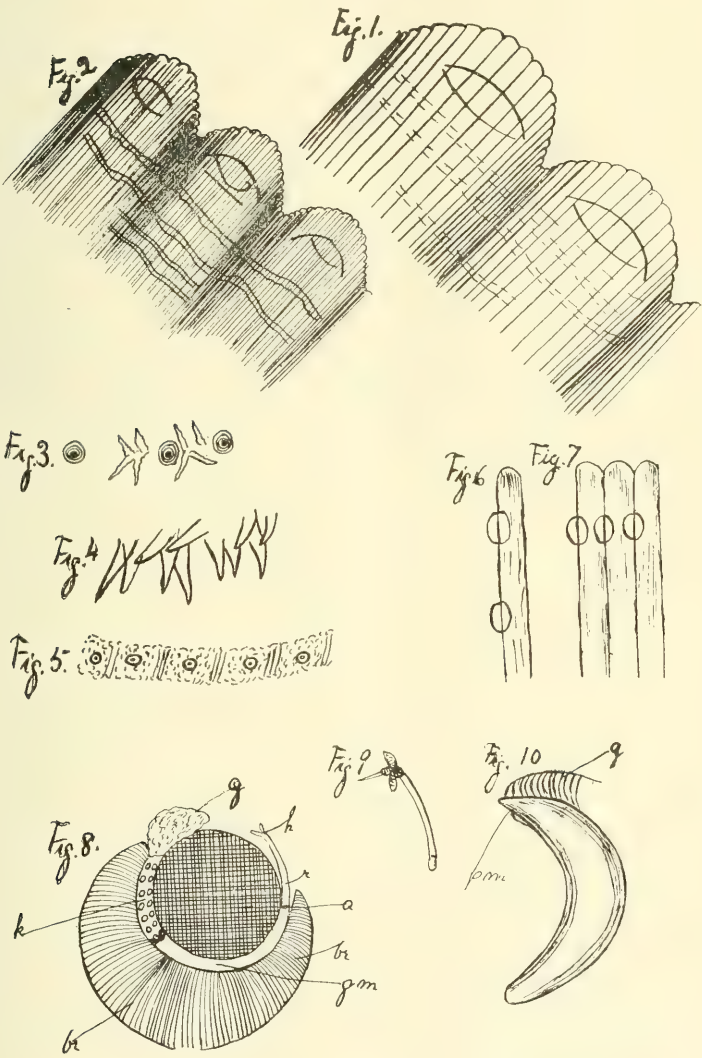 Fig. 1.
Fig. 2
Fig. 3.
Fig. 4
Fig. 5.
Fig 6
Fig. 7
Fig. 8.
g
h
r
a
br
gm
k
br
Fig 9
Fig. 10
g
pm